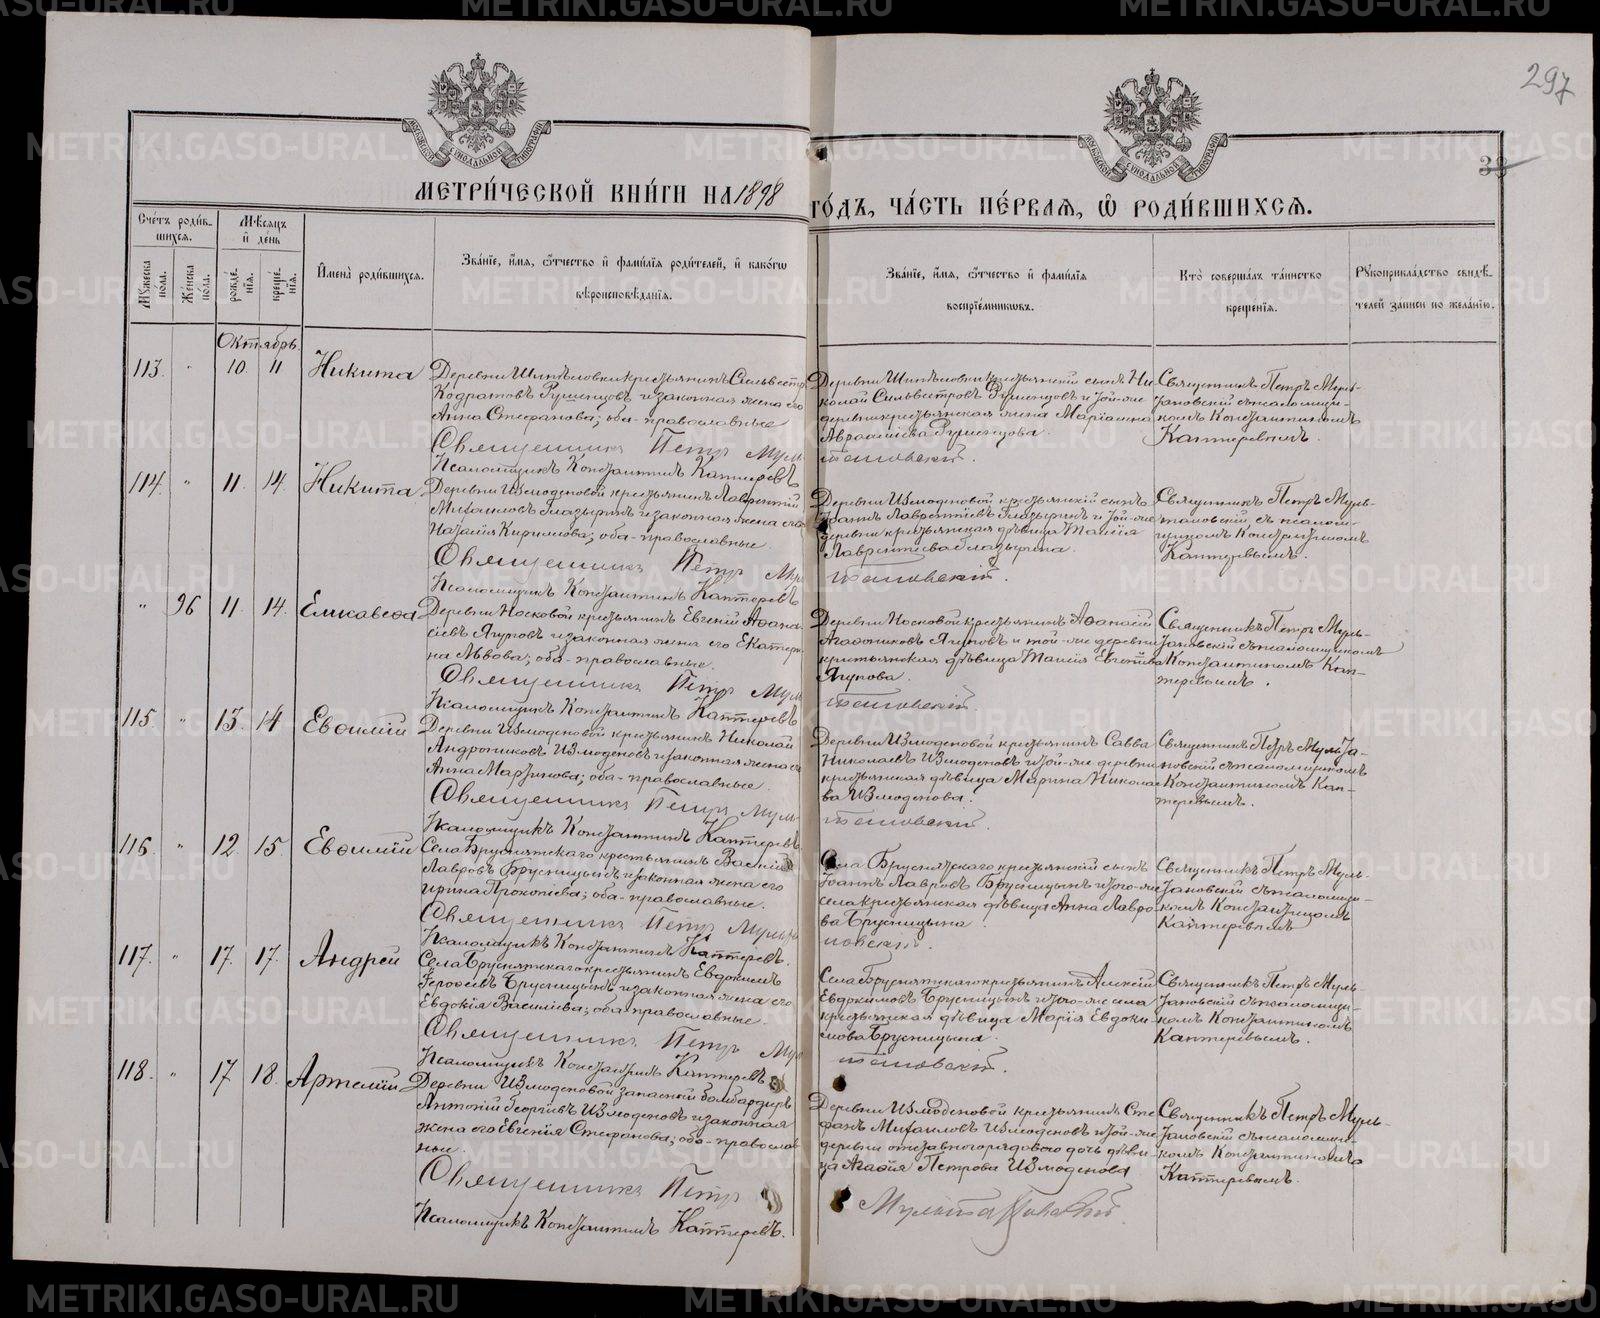 297
33
МЕТРИ́ЧЕСКОЙ КНИ́ГИ НА 1898 ГО́ДЪ, ЧА́СТЬ ПЕ́РВАѦ, Ѡ҆ РОДИ́ВШИХСѦ.
Сче́тъ роди́в-
шихсѧ.
Мꙋжеска по́ла.
Же́нска по́ла.
Мѣ́сѧцъ и҆ де́нь
рожде́-
нїѧ.
креще́-
нїѧ.
И҆мена̀ роди́вшихсѧ.
Зва́нїе, и҆́мѧ, ѻ҆́тчество и҆ фами́лїѧ роди́телей, и҆ како́гѡ
вѣроисповѣ́данїѧ.
Зва́нїе, и҆́мѧ, ѻ҆́тчество и҆ фами́лїѧ
воспрїе́мникѡвъ.
Кто̀ соверша́лъ та́инство
креще́нїѧ.
Рꙋкоприкла́дство свидѣ́-
телей за́писи по жела́нїю.
Октябрь.
113. " 10. 11 Никита
Деревни Шипѣловки крестьянинъ Сильвестръ
Кодратовъ Румянцовъ и законная жена его
Анна Стефанова; оба - православные
Священникъ Петръ Муль
Псаломщикъ Константинъ Каптеревъ
Деревни Шипѣловки крестьянскій сынъ Ни-
колай Сильвестровъ Румянцовъ и той-же
деревни крестьянская жена Маріамна
Авраамiева Румянцова.
тановскій.
Священникъ Петръ Муль-
тановскій съ псаломщи-
комъ Константиномъ
Каптеревымъ.
114. " 11. 14. Никита
Деревни Измоденовой крестьянинъ Лаврентій
Михаиловъ Глазыринъ и законная жена его
Наталія Кирилова; оба - православные.
Священникъ Петръ Мул
Псаломщикъ Константинъ Каптеревъ
Деревни Измоденовой крестьянскій сынъ
Іоаннъ Лаврентіевъ Глазыринъ и той-же
деревни крестьянская дѣвица Таисія
Лаврентіева Глазырина.
тановскій.
Священникъ Петръ Муль-
тановскій съ псалом-
щикомъ Константиномъ
Каптеревымъ.
" 96 11. 14. Елисавеѳа
Деревни Носковой крестьянинъ Евгеній Аѳана-
сіевъ Ягуповъ и законная жена его Екатери-
на Львова; оба - православные.
Священникъ Петръ Мул
Псаломщикъ Константинъ Каптеревъ
Деревни Носковой крестьянинъ Аѳанасій
Агаѳониковъ Ягуповъ и той-же деревни
крестьянская дѣвица Таисія Евгеніева
Ягупова.
тановскій.
Священникъ Петръ Муль-
тановскій съ псаломщикомъ
Константиномъ Кап-
теревымъ.
115. " 13. 14 Евѳимій
Деревни Измоденовой крестьянинъ Николай
Андрониковъ Измоденовъ и законная жена его
Анна Мартинова; оба - православные.
Священникъ Петръ Муль
Псаломщикъ Константинъ Каптеревъ
Деревни Измоденовой крестьянинъ Савва
Николаевъ Измоденовъ и той-же деревни
крестьянская дѣвица Марина Николае-
ва Измоденова.
тановскій.
Священникъ Петръ Мульта-
новскій съ псаломщикомъ
Константиномъ Кап-
теревымъ.
116. " 12. 15. Евѳимій
Села Бруснятскаго крестьянинъ Василій
Лавровъ Брусницынъ и законная жена его
Ирина Прокопіева; оба - православные.
Священникъ Петръ Мульта
Псаломщикъ Константинъ Каптеревъ.
Села Бруснятскаго крестьянскій сынъ
Іоаннъ Лавровъ Брусницынъ и того-же
села крестьянская дѣвица Анна Лавро-
ва Брусницына.
новскій.
Священникъ Петръ Муль-
тановскій съ псаломщи-
комъ Константиномъ
Каптеревымъ
117. " 17. 17. Андрей
Села Бруснятскаго крестьянинъ Евдокимъ
Героѳеевъ Брусницынъ и законная жена его
Евдокія Василіева; оба православные.
Священникъ Петръ Мул
Псаломщикъ Константинъ Каптеревъ
Села Бруснятскаго крестьянинъ Алексій
Евдокимовъ Брусницынъ и того-же села
крестьянская дѣвица Марія Евдоки-
мова Брусницына.
тановскій.
Священникъ Петръ Муль-
тановскій съ псаломщи-
комъ Константиномъ
Каптеревымъ.
118. " 17 18. Артемій
Деревни Измоденовой запасный бомбардиръ
Антоній Георгіевъ Измоденовъ и законная
жена его Евгенія Стефанова; оба - православ-
ные.
Священникъ Петръ
Псаломщикъ Константинъ Каптеревъ.
Деревни Измоденовой крестьянинъ Сте-
фанъ Михаиловъ Измоденовъ и той-же
деревни отставного рядового дочь дѣви-
ца Агаѳія Петрова Измоденова
Мультановскій.
Священникъ Петръ Муль-
тановскій съ псаломщи-
комъ Константиномъ
Каптеревымъ.
METRIKI.GASO-URAL.RU